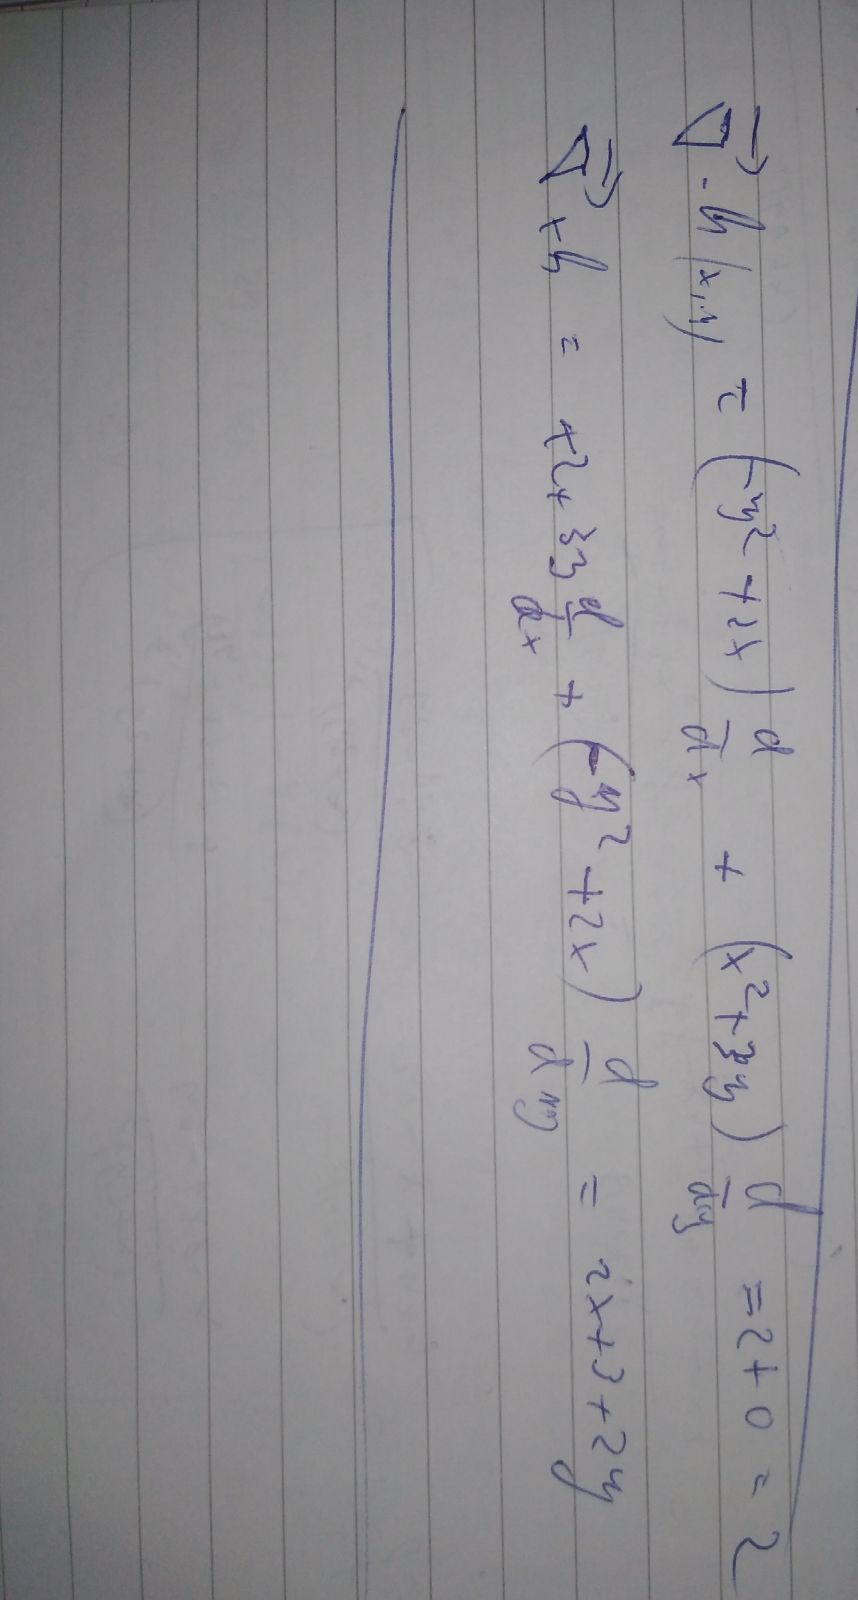 ∇⃗ · h(x,y) = (-y² + 2x) d/dx + (x² + 3y) d/dy = 2 + 0 = 2
∇⃗ × h = x2 + 3y d/dx + (-y² + 2x) d/dy = 2x + 3 + 2y